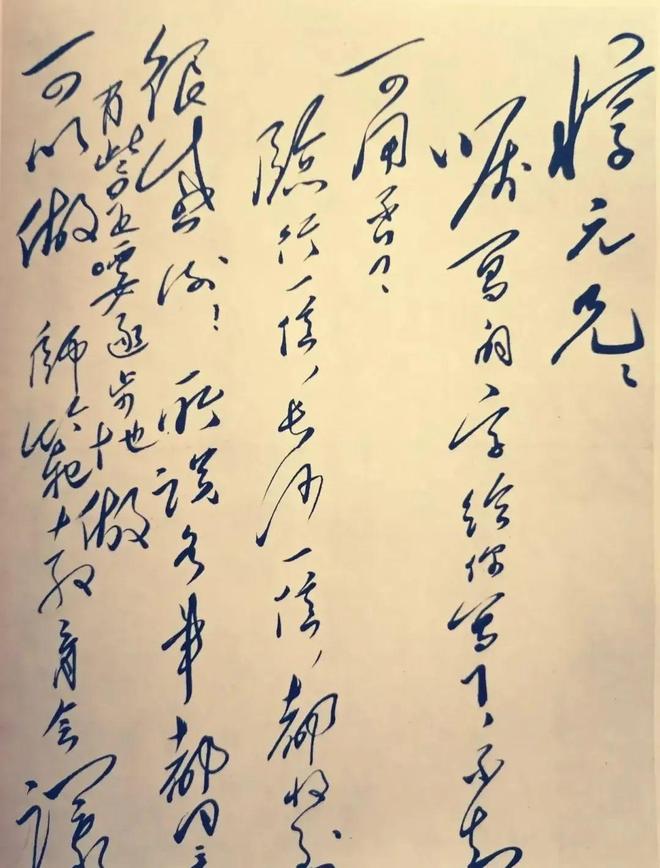 惇元兄：
嘱写的字给你写了，不知
可用否？
临行一信，长沙一信，都收到
很感谢！所说各事都同意
有些还要逐步地做
可以做 师范教育会议